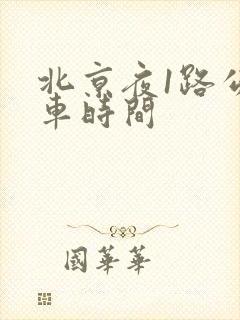 北京夜1路
車時間
國華華